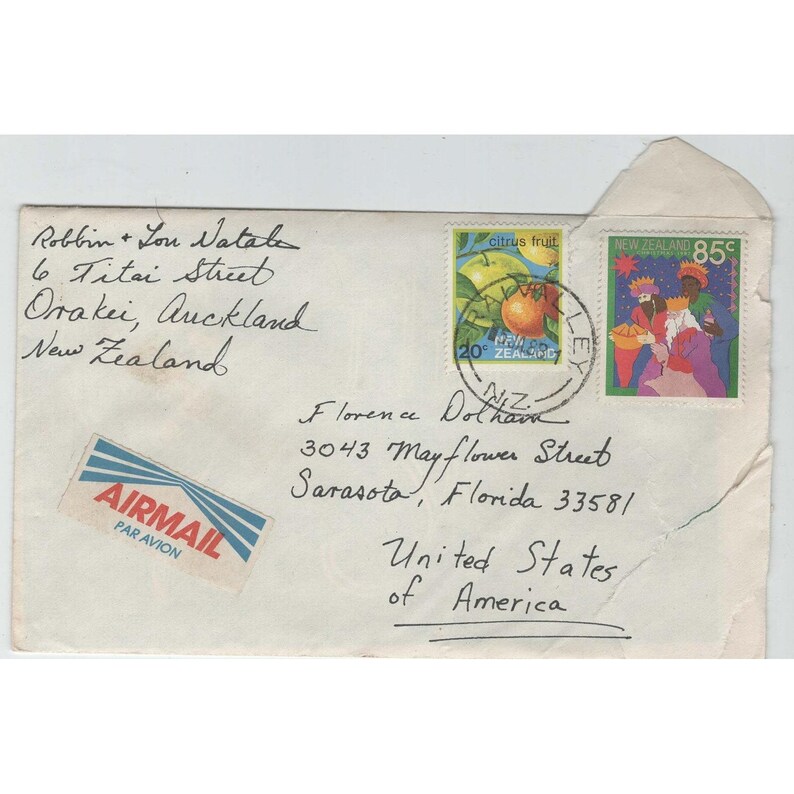 Robbin + Lou Natale
6 Titai Street
Orakei, Auckland
New Zealand
citrus fruit
20c
NEW
ZEALAND
NEW ZEALAND
CHRISTMAS
85c
VALLEY
N.Z.
Florence Dolham
3043 Mayflower Street
Sarasota, Florida 33581
United States
of America
AIRMAIL
PAR AVION